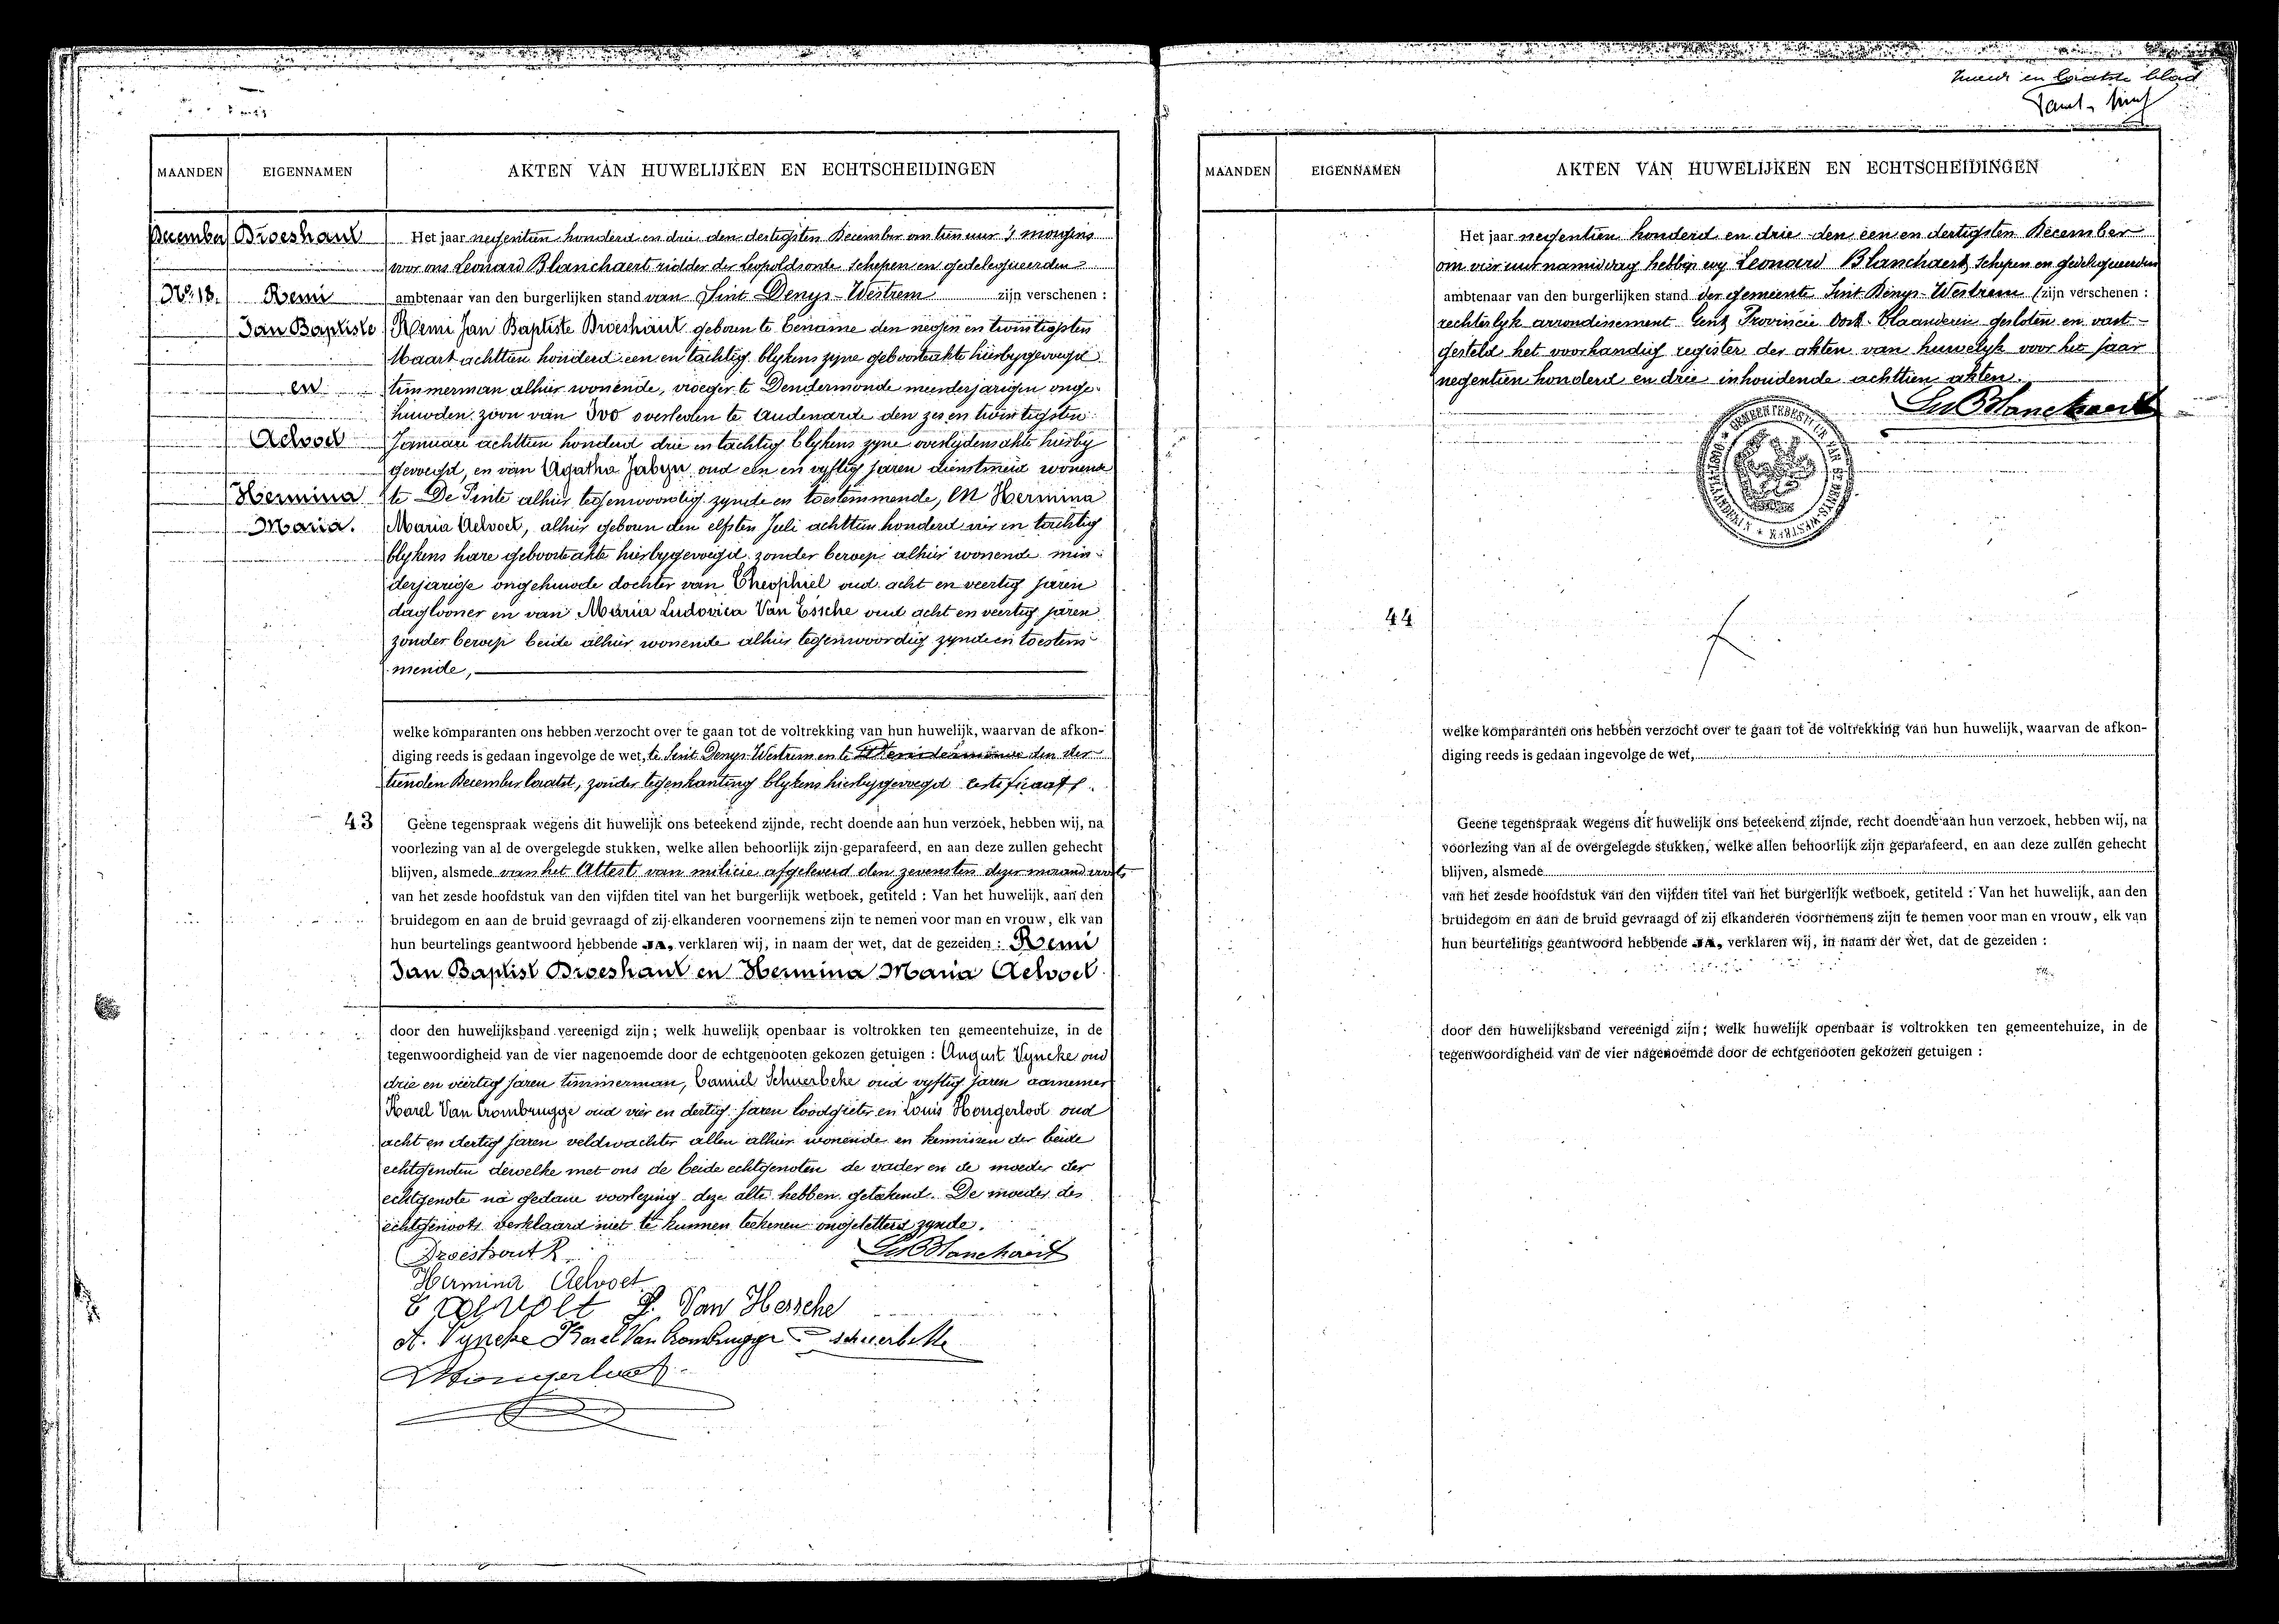 tweede en laatste blad
MAANDEN
EIGENNAMEN
AKTEN VAN HUWELIJKEN EN ECHTSCHEIDINGEN
December
Broeshaut
Nº 18.
Remi
Jan Baptiste
en
Aelvoet
Hermina
Maria.
Het jaar negentien honderd en drie den dertigsten December om tien uur 's morgens
voor ons Leonard Blanchaert ridder der Leopoldsorde Schepen en gedelegueerden
ambtenaar van den burgerlijken stand van Sint Denys-Westrem zijn verschenen :
Remi Jan Baptiste Broeshaut geboren te Ename den negen en twintigsten
Maart achttien honderd een en tachtig blykens zyne geboorteakte hierbygevoegd
timmerman alhier wonende, vroeger te Dendermonde meerderjarigen onge-
huwden zoon van Ivo overleden te Audenarde den zes en twintigsten
Januari achttien honderd drie en tachtig blykens zyne overlydensakte hierby
gevoegd, en van Agatha Jabyn oud een en vyftig jaren dienstmeid wonende
te De Pinte alhier tegenwoordig zynde en toestemmende, en Hermina
Maria Aelvoet, alhier geboren den elfsten Juli achttien honderd vier en tachtig
blykens hare geboorteakte hierbygevoegd zonder beroep alhier wonende min-
derjarige ongehuwde dochter van Theophiel oud acht en veertig jaren
daglooner en van Maria Ludovica Van Essche oud acht en veertig jaren
zonder beroep beide alhier wonende alhier tegenwoordig zynde en toestem-
mende,
welke komparanten ons hebben verzocht over te gaan tot de voltrekking van hun huwelijk, waarvan de afkon-
diging reeds is gedaan ingevolge de wet, te Sint Denys-Westrem en te Dendermonde den der
tienden December laatst, zonder tegenkanting blykens hierbygevoegd certificaat.
43
Geene tegenspraak wegens dit huwelijk ons beteekend zijnde, recht doende aan hun verzoek, hebben wij, na
voorlezing van al de overgelegde stukken, welke allen behoorlijk zijn geparafeerd, en aan deze zullen gehecht
blijven, alsmede van het Attest van milicie afgeleverd den zevensten dezer maand
van het zesde hoofdstuk van den vijfden titel van het burgerlijk wetboek, getiteld : Van het huwelijk, aan den
bruidegom en aan de bruid gevraagd of zij elkanderen voornemens zijn te nemen voor man en vrouw, elk van
hun beurtelings geantwoord hebbende JA, verklaren wij, in naam der wet, dat de gezeiden : Remi
Jan Baptist Broeshaut en Hermina Maria Aelvoet
door den huwelijksband vereenigd zijn; welk huwelijk openbaar is voltrokken ten gemeentehuize, in de
tegenwoordigheid van de vier nagenoemde door de echtgenooten gekozen getuigen : August Vyncke oud
drie en veertig jaren timmerman, Camiel Schuerbeke oud vyftig jaren aannemer
Karel Van Crombrugge oud vier en dertig jaren loodgieter en Louis Hongerloot oud
acht en dertig jaren veldwachter allen alhier wonende en kennissen der beide
echtgenoten dewelke met ons de beide echtgenoten de vader en de moeder der
echtgenote na gedane voorlezing deze akte hebben geteekend. De moeder des
echtgenoots verklaard niet te kunnen teekenen ongeletterd zynde.
Broeshout R
Hermina Aelvoet
L. Van Hessche
A. Vyncke Karel Van Crombrugge
MAANDEN
EIGENNAMEN
AKTEN VAN HUWELIJKEN EN ECHTSCHEIDINGEN
Het jaar negentien honderd en drie den een en dertigsten December
om vier uur namiddag hebben wy Leonard Blanchaert, Schepen en gedelegueerden
ambtenaar van den burgerlijken stand der gemeente Sint-Denys-Westrem (zijn verschenen :
rechterlyk arrondissement Gent, Provincie Oost-Vlaanderen gesloten en vast-
gesteld het voorhandig register der akten van huwelyk voor het jaar
negentien honderd en drie inhoudende achttien akten.
44
welke komparanten ons hebben verzocht over te gaan tot de voltrekking van hun huwelijk, waarvan de afkon-
diging reeds is gedaan ingevolge de wet,
Geene tegenspraak wegens dit huwelijk ons beteekend zijnde, recht doende aan hun verzoek, hebben wij, na
voorlezing van al de overgelegde stukken, welke allen behoorlijk zijn geparafeerd, en aan deze zullen gehecht
blijven, alsmede
van het zesde hoofdstuk van den vijfden titel van het burgerlijk wetboek, getiteld : Van het huwelijk, aan den
bruidegom en aan de bruid gevraagd of zij elkanderen voornemens zijn te nemen voor man en vrouw, elk van
hun beurtelings geantwoord hebbende JA, verklaren wij, in naam der wet, dat de gezeiden :
door den huwelijksband vereenigd zijn; welk huwelijk openbaar is voltrokken ten gemeentehuize, in de
tegenwoordigheid van de vier nagenoemde door de echtgenooten gekozen getuigen :